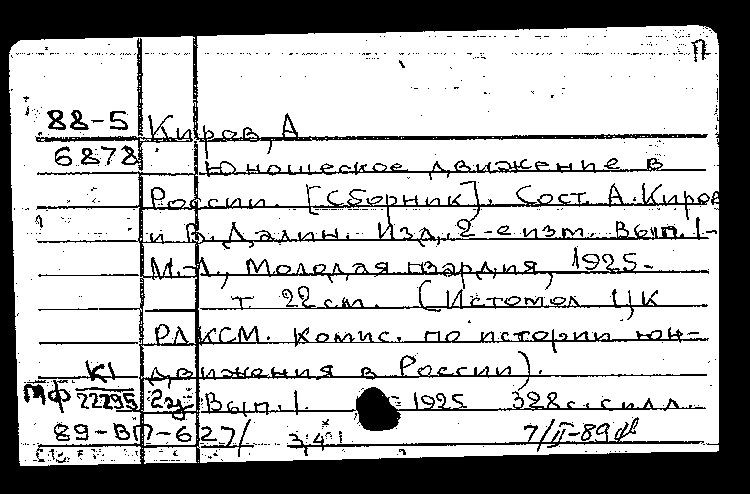 П
88-5 Киров, А
6878 Юношеское движение в
России. [Сборник]. Сост. А. Киров
и В. Далин. Изд. 2-е изм. Вып. 1-
М.-Л., Молодая гвардия, 1925-
т 22 см. (Истомол ЦК
РЛКСМ. Комис. по истории юн-
К1 движения в России).
мф 22295 Вып. 1. 1925 328 с. с илл.
89-ВП-627/ 7/II-89